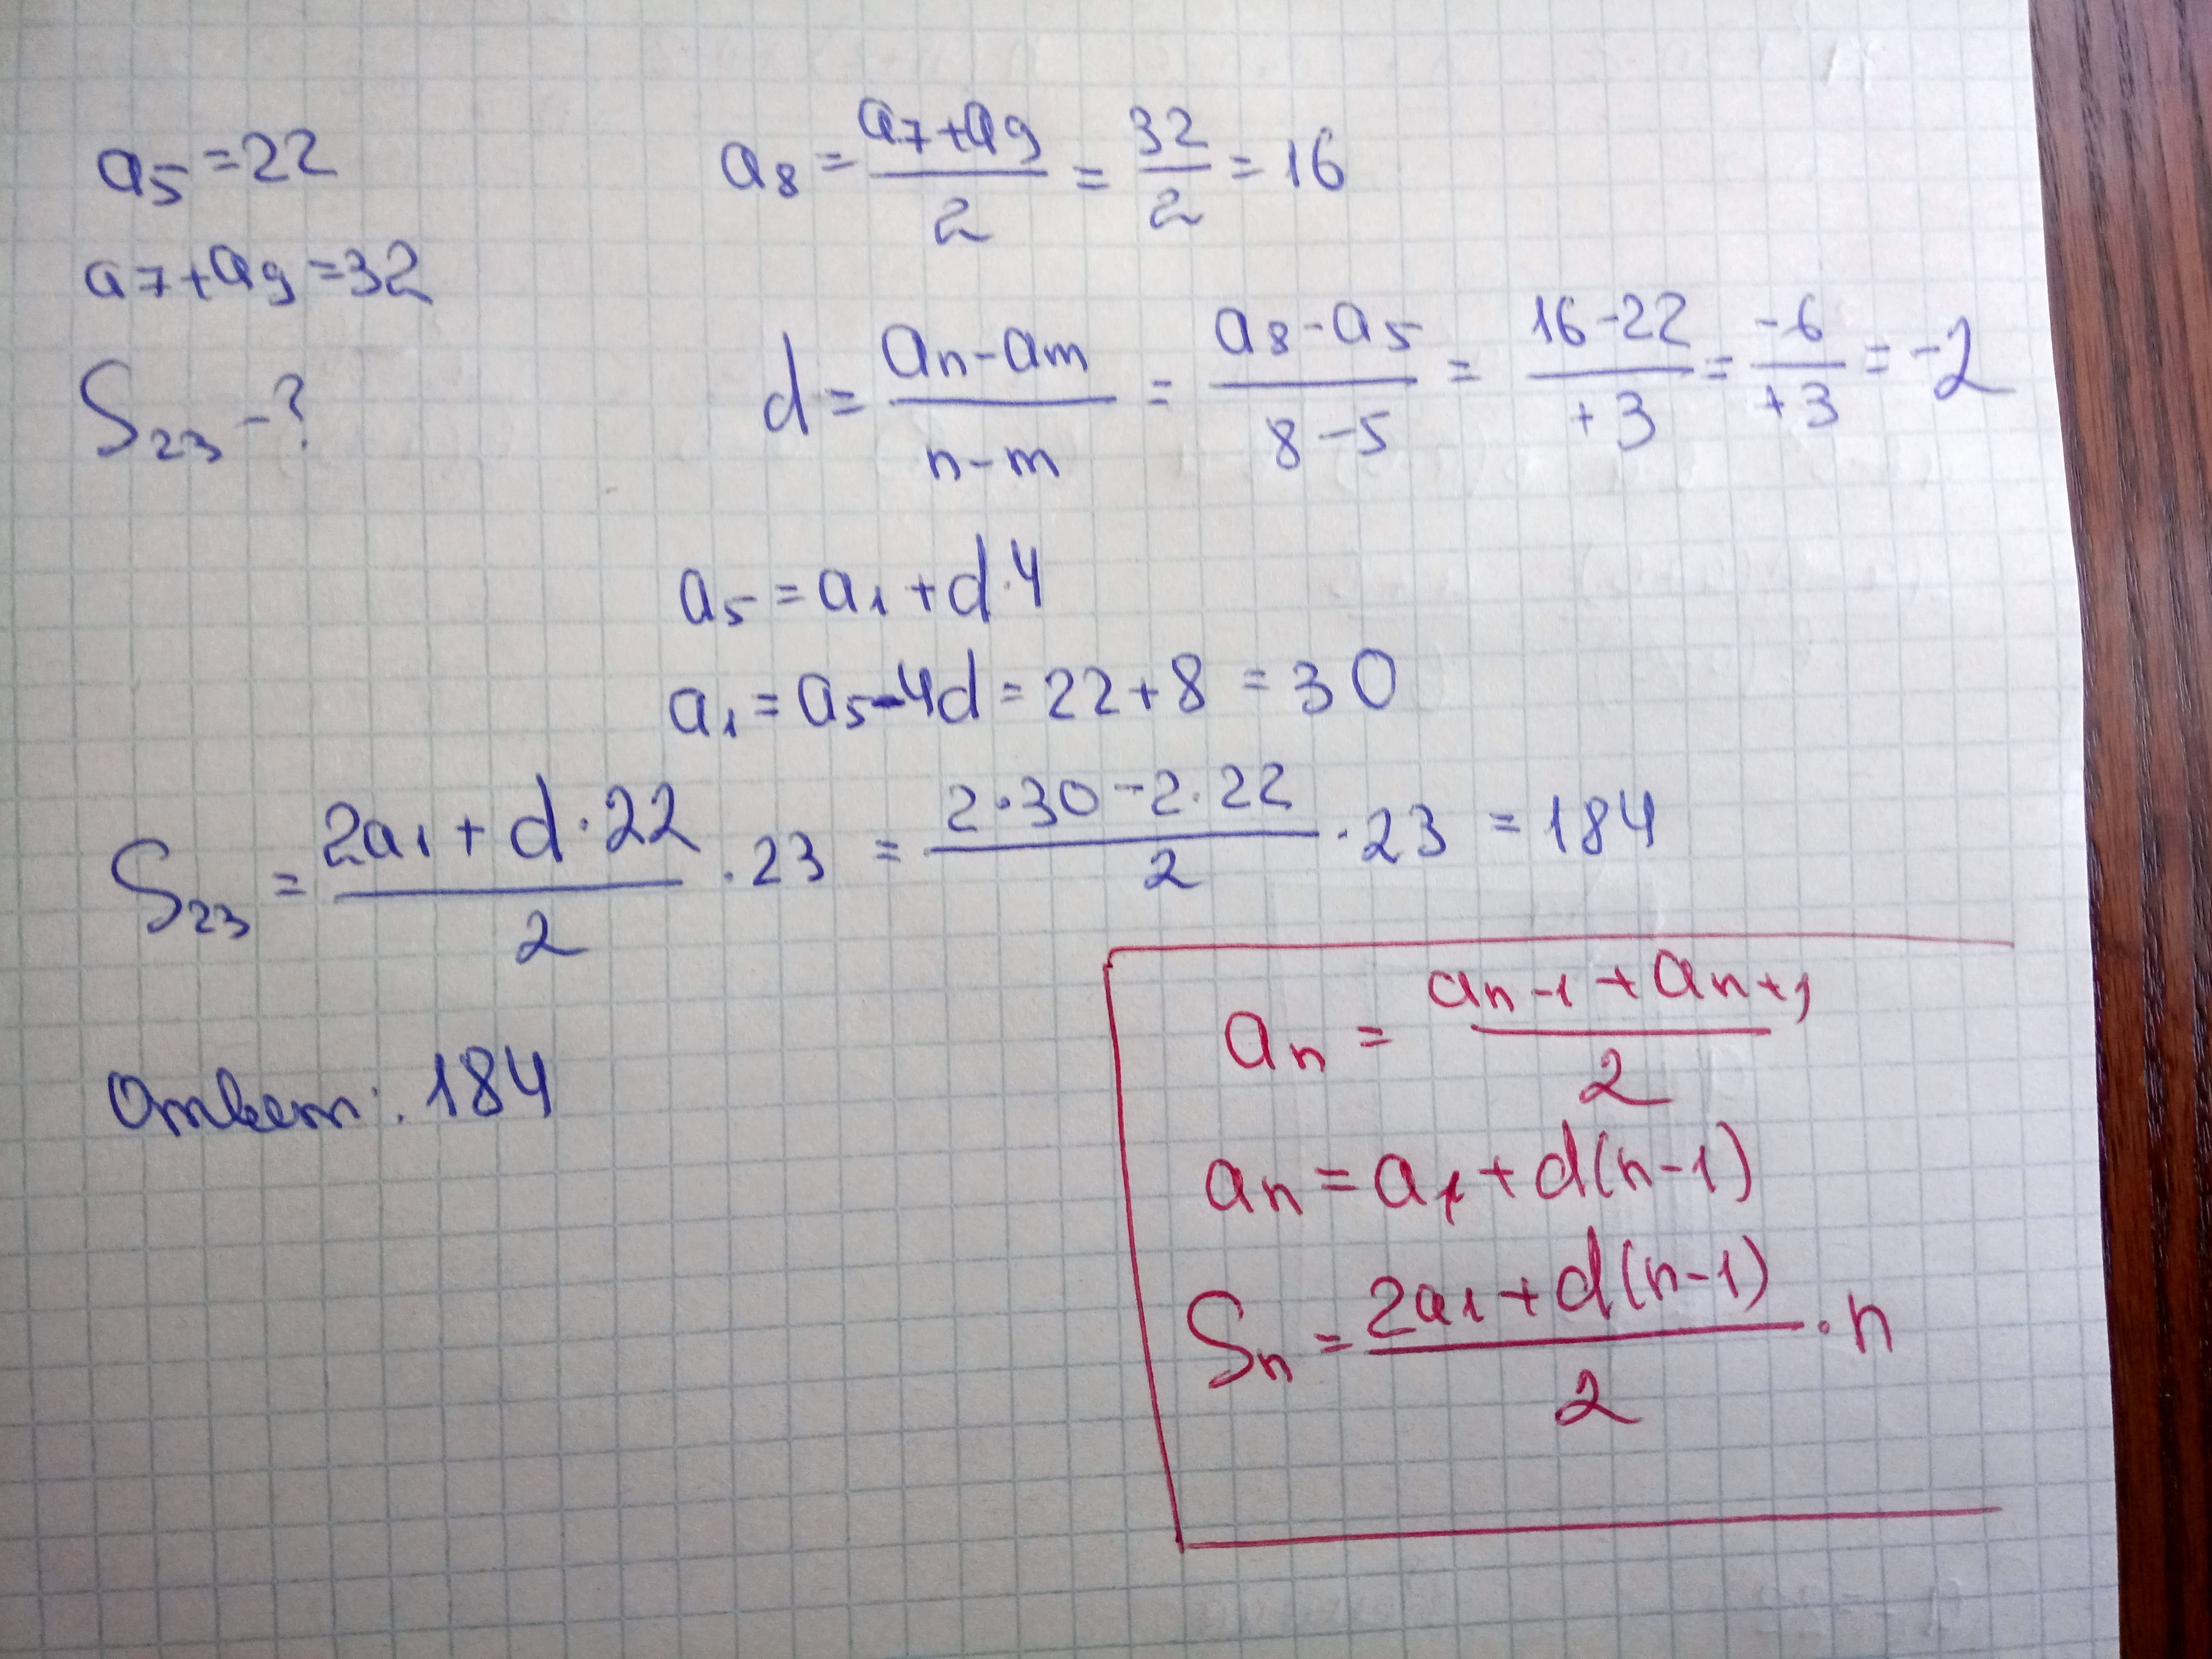 a₅ = 22
a₇ + a₉ = 32
S₂₃ - ?
a₈ = (a₇ + a₉)/2 = 32/2 = 16
d = (aₙ - aₘ)/(n - m) = (a₈ - a₅)/(8 - 5) = (16 - 22)/(+3) = -6/(+3) = -2
a₅ = a₁ + d·4
a₁ = a₅ - 4d = 22 + 8 = 30
S₂₃ = (2a₁ + d·22)/2 · 23 = (2·30 - 2·22)/2 · 23 = 184
Ответ: 184
aₙ = (aₙ₋₁ + aₙ₊₁)/2
aₙ = a₁ + d(n-1)
Sₙ = (2a₁ + d(n-1))/2 · n